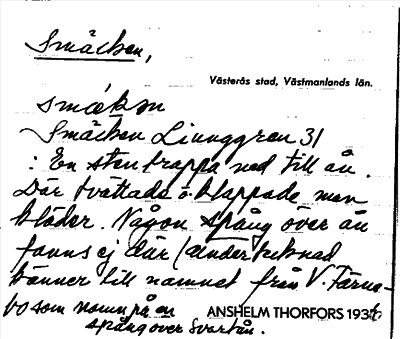 Småcken,
Västerås stad, Västmanlands län.
småkən
Småcken Ljunggren 31
: En stentrappa ned till ån.
Där tvättade o. klappade man
kläder. Någon spång över ån
fanns ej där (undertecknad
känner till namnet från V. Färne-
bo som namn på en
spång över Svartån.
ANSHELM THORFORS 1936